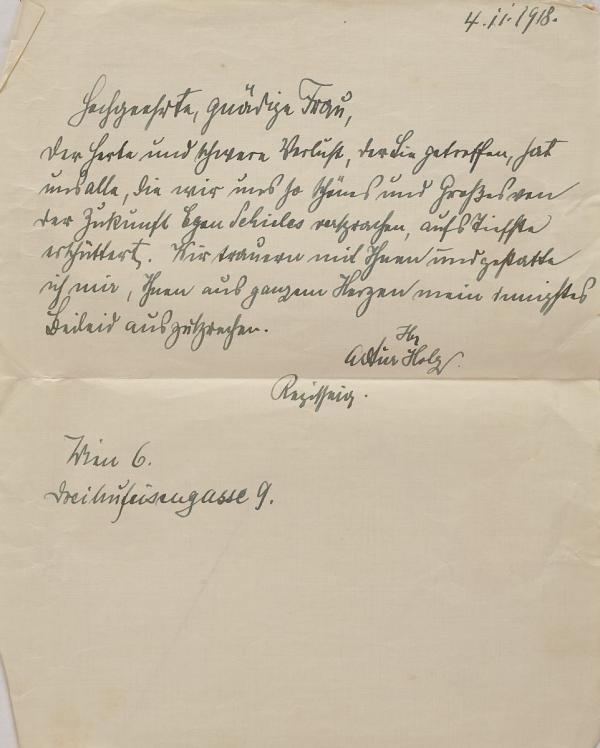 4.11.1918.
Hochgeehrte, gnädige Frau,
der herbe und schwere Verlust, der Sie getroffen, hat
uns alle, die wir uns so schönes und Großes von
der Zukunft Egon Schieles versprachen, aufs Tiefste
erschüttert. Wir trauern mit Ihnen und gestatte
ich mir, Ihnen aus ganzem Herzen mein innigstes
Beileid auszusprechen.
Ihr
Artur Holz.
Regisseur.
Wien 6.
Dreihufeisengasse 9.